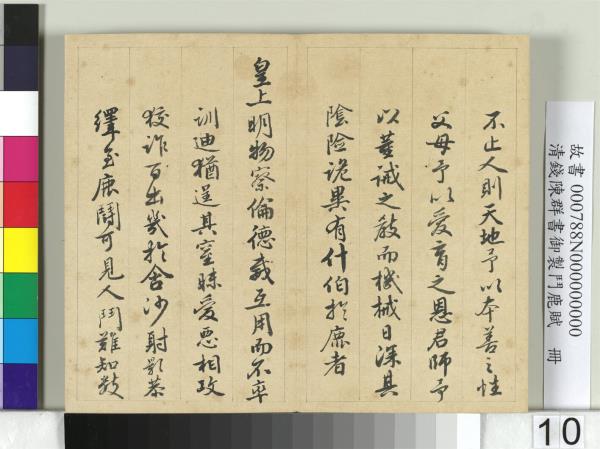 不止人則天地予以本善之性
父母予以愛育之恩君師予
以董誡之教而機械日深其
陰險詭異有什伯於鹿者
皇上明物察倫德威互用而不率
訓迪猶逞其 愛惡相攻
狡詐百出幾於含沙射影恭
繹至鹿鬪可見人鬪難知數
故書 000788N000000000
清錢陳群書御製鬥鹿賦 冊
10